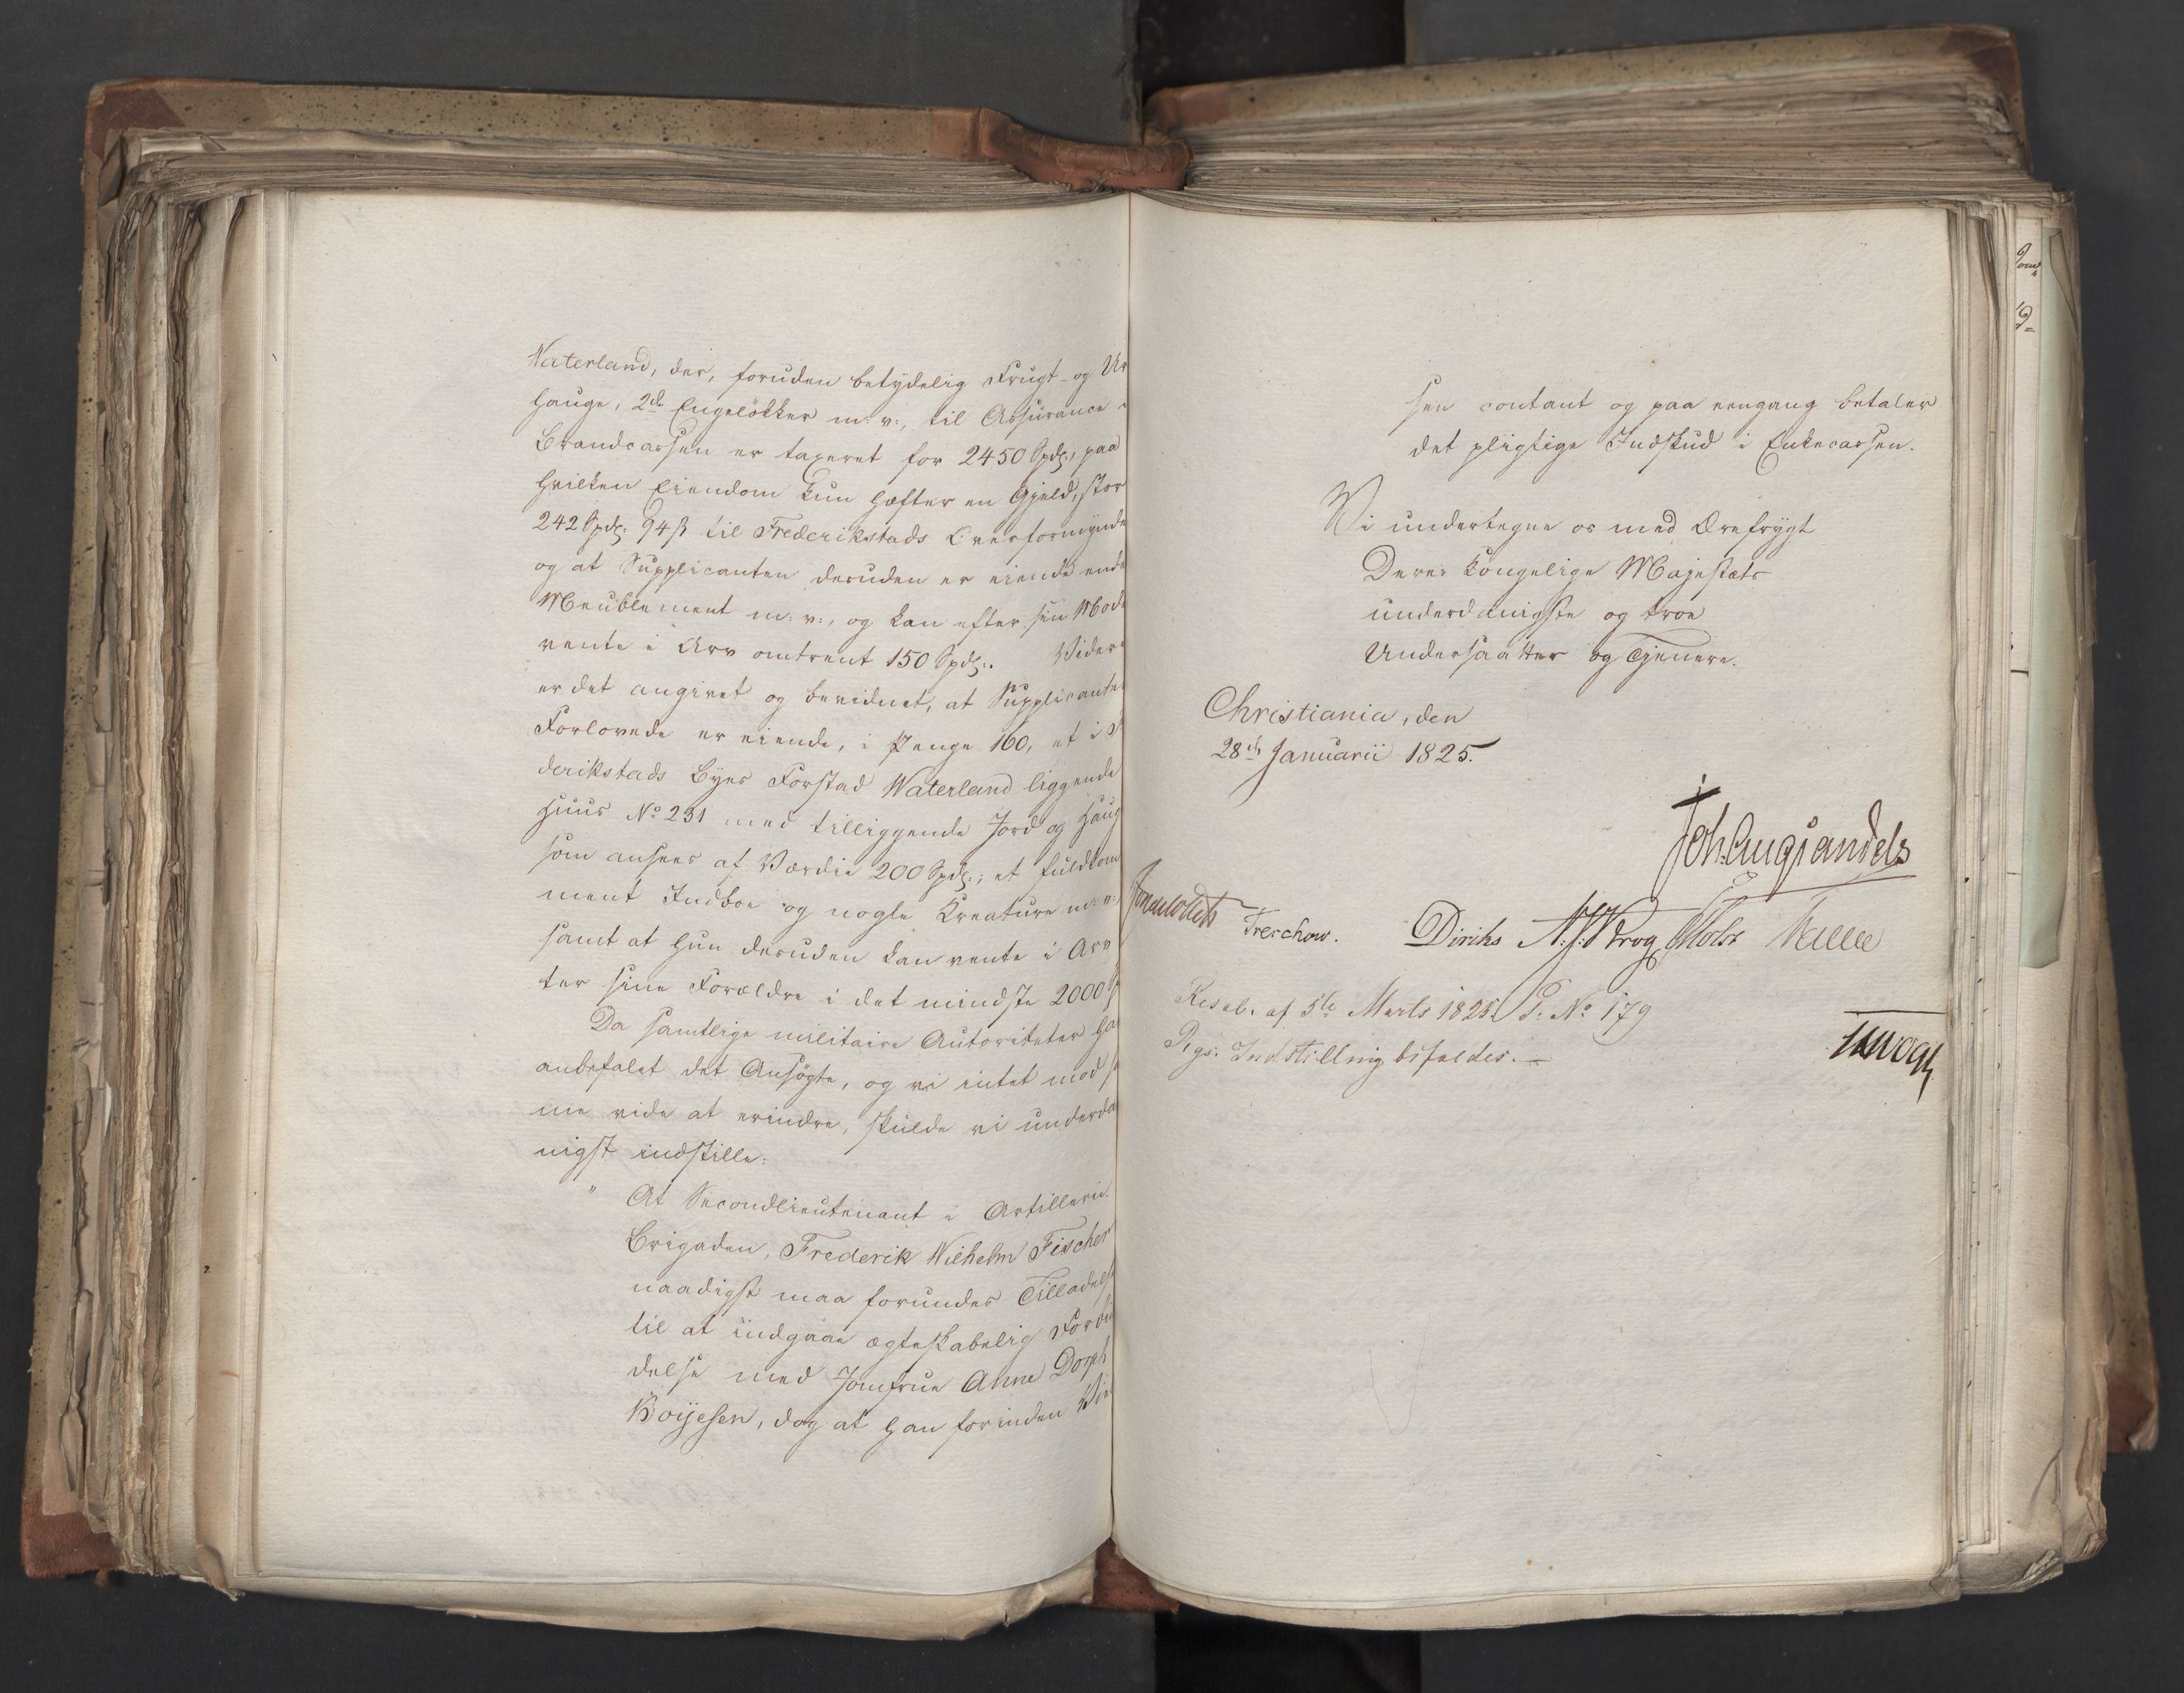 Waterland, der, foruden betydelig Frugt- og Ur
Hauge, 2de Engeløkker m: v:, til Assurance
Brandcassen er taxeret for 2450 Spdl:, paa
hvilken Eiendom kun hæfter en Gjeld, stor
242 Spdl: 94 ß til Frederikstads Overformynde
og at Supplicanten desuden er eiende ende
Meublement m: v:, og kan efter sin Mode
vente i Arv omtrent 150 Spdl:. Videre
er det angivet og bevidnet, at Supplicante
Forlovede er eiende, i Penge 160, et i
derikstads Byes Forstad Waterland liggende
Huus No 231 med tilliggende Jord og Haug
som ansees af Værdie 200 Spdl:; et fuldkom
ment Indboe og nogle Kreature m: v:
samt at hun desuden kan vente i Arv
ter sine Forældre i det mindste 2000
Da samtlige militaire Autoriteter ha
anbefalet det Ansøgte, og vi intet mod sa
me vide at erindre, skulde vi underda
nigst indstille:
" At Secondlieutenant i Artillerie
Brigaden, Frederik Wilhelm Fischer
naadigst maa forundes Tilladelse
til at indgaae ægteskabelig Forbi
delse med Jomfrue Anne Dorph
Boijesen, dog at han forinden Vi
sen contant og paa eengang betaler
det pligtige Indskud i Enkecassen.
Vi undertegne os med Ærefrygt
Deres Kongelige Majestæts
underdanigste og troe
Undersaatter og Tjenere.
Christiania, den
28de Januarii 1825.
Joh: Aug: Sandels
Treschow. Diriks N. J. Krog Motz
Resol. af 5te Marts 1825. P: No 179
Rgs: Indstilling bifaldes. –